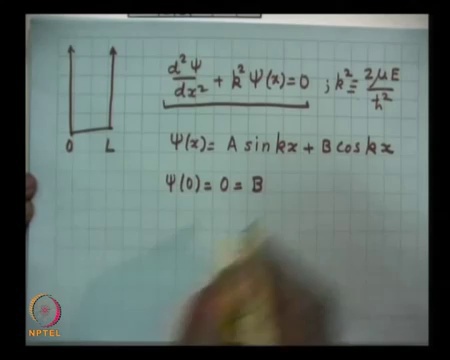 d²Ψ/dx² + k² Ψ(x) = 0 ; k² = 2μE/ħ²
0 L
Ψ(x) = A sin kx + B cos kx
Ψ(0) = 0 = B
NPTEL